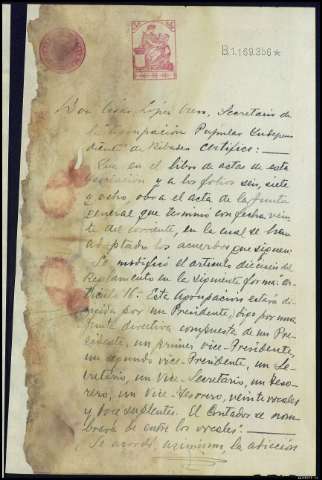 B.1.169.356*
Don César López Otero, Secretario de
la Agrupación Popular Indepen
diente de Ribadeo Certifico:
Que en el libro de actas de esta
Asociación y a los folios seis, siete
y ocho, obra el acta de la Junta
general que terminó con fecha vein
te del corriente, en la cual se han
adoptado los acuerdos que siguen:
Se modificó el artículo dieciseis del
Reglamento en la siguiente forma: ar-
tículo 16: Esta Agrupación estará di-
rigida por un Presidente, bajo por una
Junta directiva compuesta de un Pre-
sidente, un primer vice-Presidente,
un segundo vice-Presidente, un Se-
cretario, un Vice-Secretario, un Teso-
rero, un vice-Tesorero, veinte vocales
y doce suplentes. El Contador se nom-
brará de entre los vocales:
Se acordó, asimismo, la adición